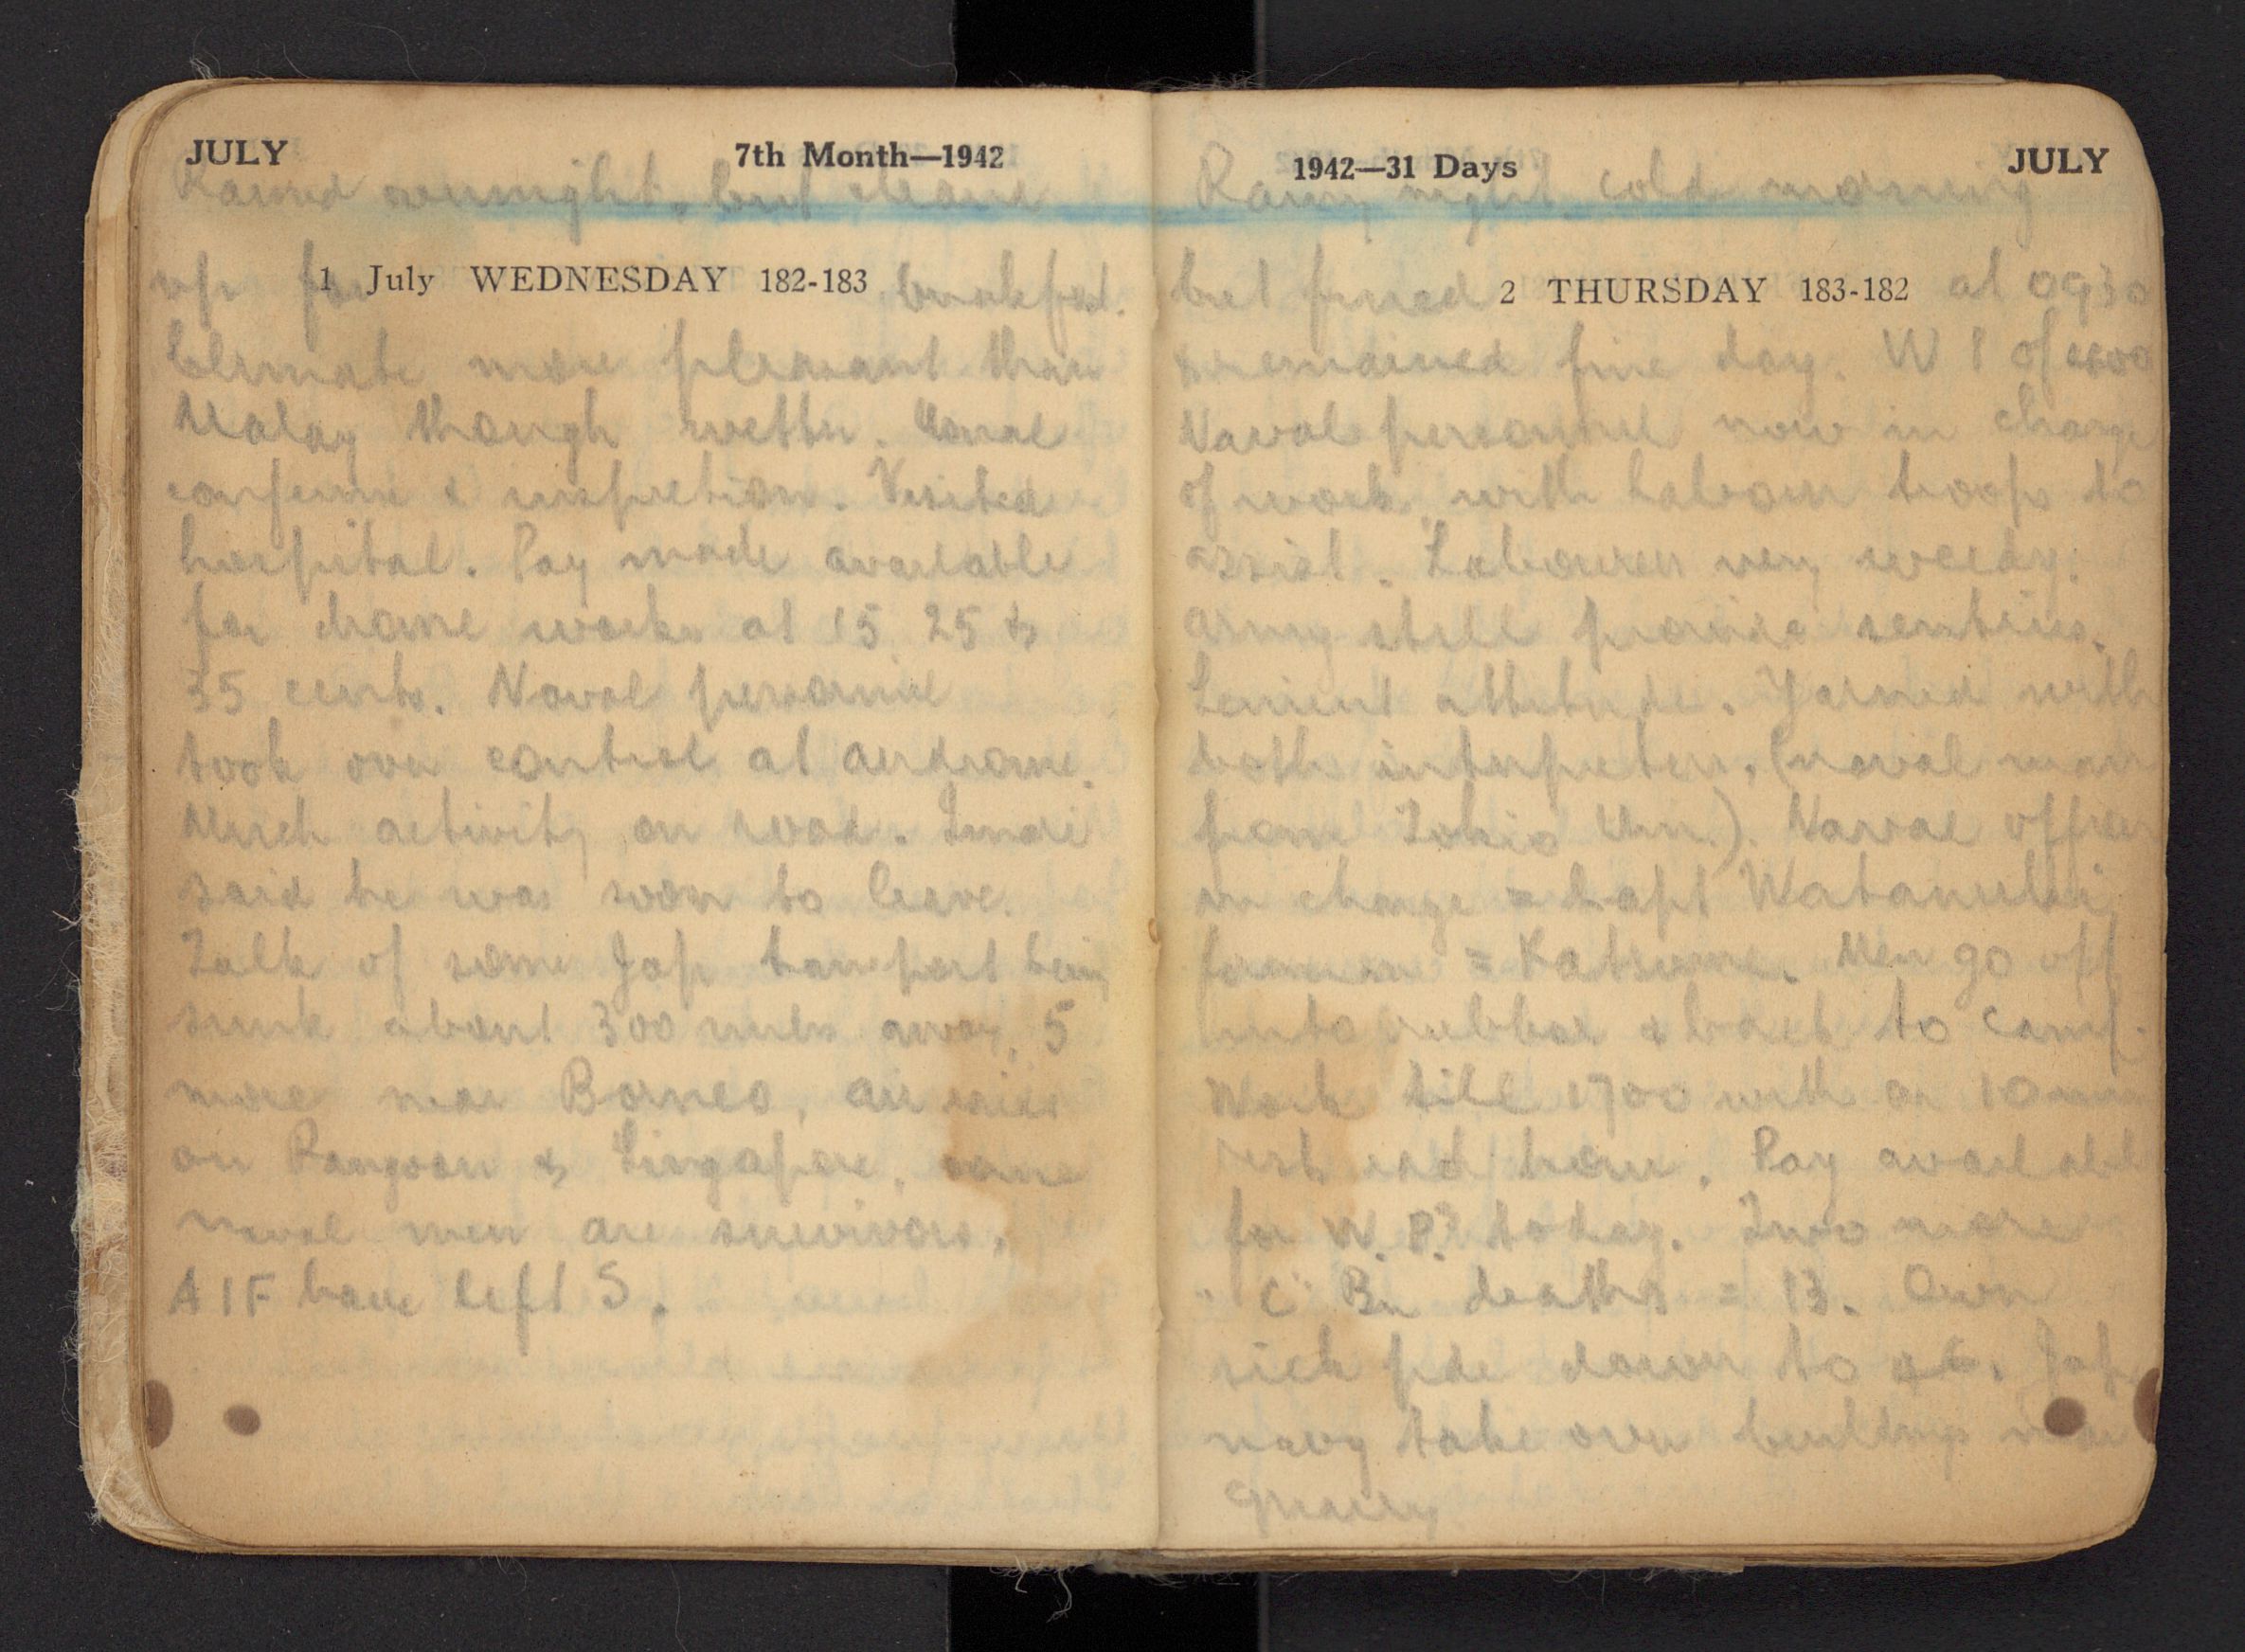 JULY 7th Month—1942
Rained overnight, but cleared
up for 1 July WEDNESDAY 182-183 breakfast.
Climate more pleasant than
Malay though wetter. Usual
conference & inspection. Visited
hospital. Pay made available
for drome works at 15 25 &
35 cents. Naval personnel
took over control at aerdrome.
Much activity on road. Imai
said he was soon to leave.
Talk of some Jap transport being
sunk about 300 miles away, 5
more near Borneo, air raids
on Rangoon & Singapore, some
naval men are survivors.
AIF have left S.
1942—31 Days JULY
Rainy night, cold morning
but fined 2 THURSDAY 183-182 at 0930
remained fine day. W P of
Naval personnel now in charge
of work with Labour troops to
assist. Labourers very weedy.
Army still provide sentries.
Lenient attitude. Yarned with
both interpreters, (naval man
from Tokio Uni.). Naval officer
in charge = Capt Watanuki
foreman = Katsume. Men go off
into rubber & back to camp.
Work till 1700 with a 10 min
rest each hour. Pay available
for W.P.s today. Two more
"C" Bn deaths = 13. Own
sick pde down to 46. Jap
navy take over buildings near
quarry